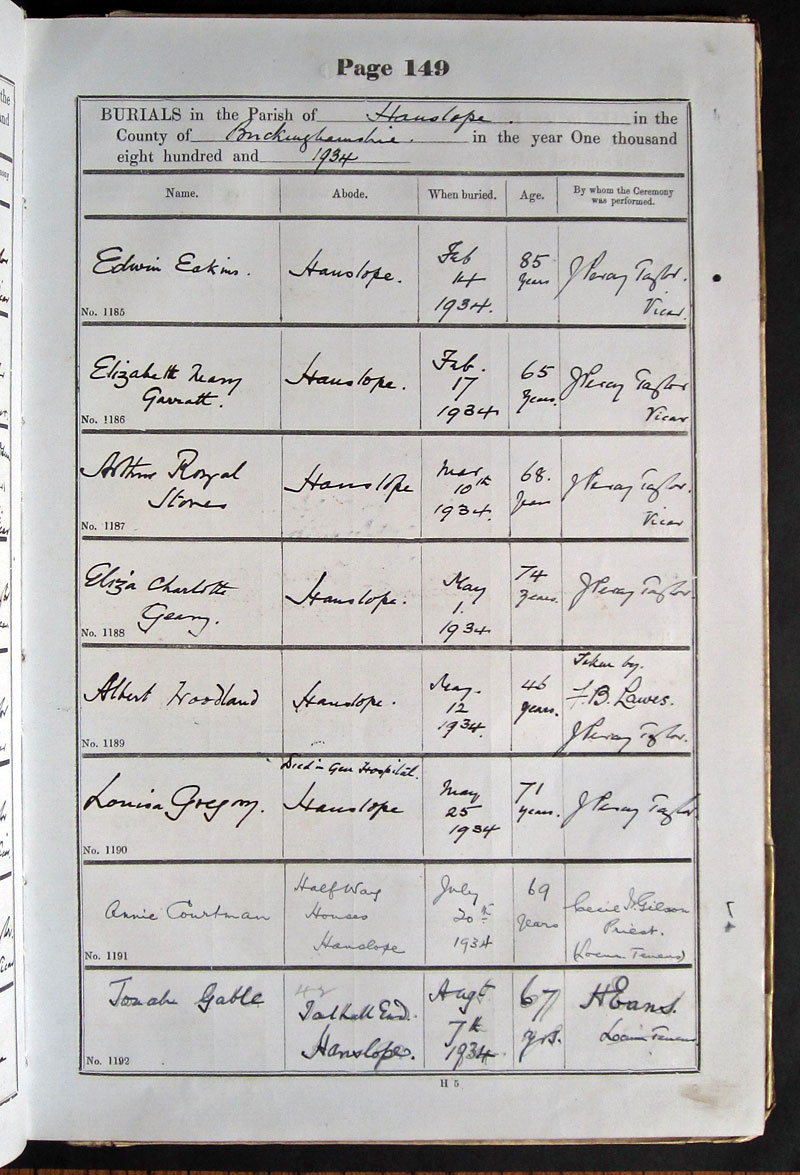 Page 149
BURIALS in the Parish of Hanslope. in the
County of Buckinghamshire. in the year One thousand
eight hundred and 1934
Name. Abode. When buried. Age. By whom the Ceremony was performed.
Edwin Eakins. Hanslope. Feb 14 1934. 85 years J Percy Taylor. Vicar.
No. 1185
Elizabeth Mary Garratt. Hanslope. Feb. 17 1934 65 Years. J Percy Taylor Vicar
No. 1186
Arthur Royal Stones Hanslope Mar. 10th 1934. 68. years J Percy Taylor. Vicar
No. 1187
Eliza Charlotte Geary. Hanslope. May 1. 1934 74 Years. J Percy Taylor.
No. 1188
Albert Woodland Hanslope. May. 12 1934. 46 years. Taken by. F. B. Lawes. J Percy Taylor.
No. 1189
Louisa Gregory. Died in Gen Hospital. Hanslope May 25 1934 71 years. J Percy Taylor
No. 1190
Annie Courtman Half Way Houses Hanslope July 20th 1934 69 years Cecil Gilson Priest. (Locum Tenens)
No. 1191
Jonah Gable 42 Tathall End. Hanslope. Augt 7th 1934 67 yrs. H Evans. Locum Tenens
No. 1192
H 5